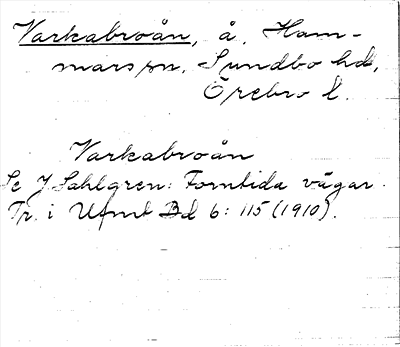 Varkabroån, å, Ham-
mars sn, Sundbo hd,
Örebro l.
Varkabroån
Se J Sahlgren: Forntida vägar.
Tr. i Ufmt Bd 6: 115 (1910).